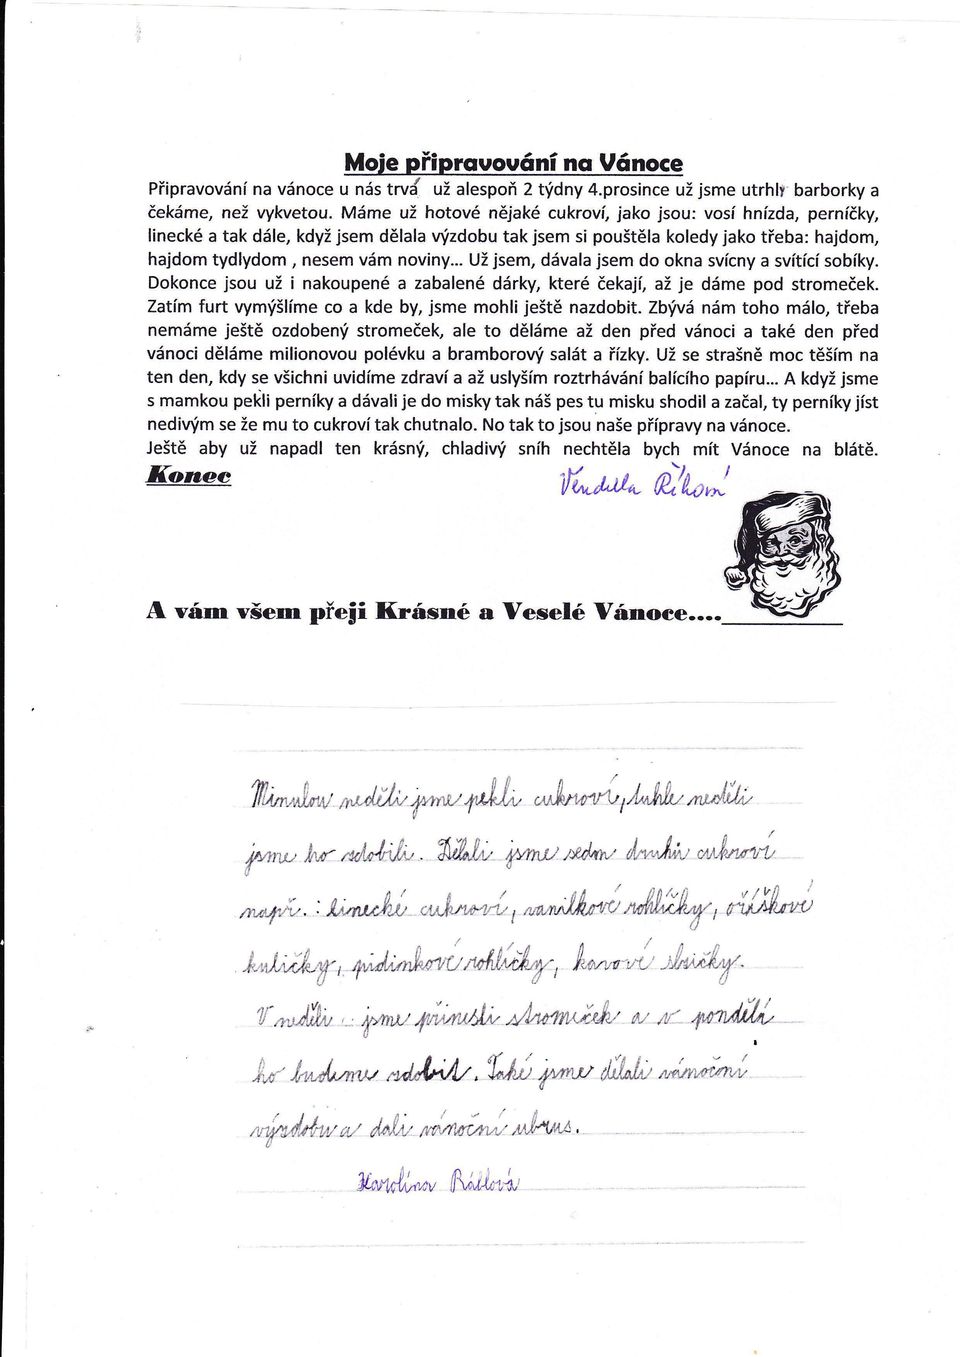 Moje připravování na Vánoce
Připravování na vánoce u nás trvá už alespoň 2 týdny 4.prosince už jsme utrhly barborky a
čekáme, než vykvetou. Máme už hotové nějaké cukroví, jako jsou: vosí hnízda, perníčky,
linecké a tak dále, když jsem dělala výzdobu tak jsem si pouštěla koledy jako třeba: hajdom,
hajdom tydlydom , nesem vám noviny... Už jsem, dávala jsem do okna svícny a svítící sobíky.
Dokonce jsou už i nakoupené a zabalené dárky, které čekají, až je dáme pod stromeček.
Zatím furt vymýšlíme co a kde by, jsme mohli ještě nazdobit. Zbývá nám toho málo, třeba
nemáme ještě ozdobený stromeček, ale to děláme až den před vánoci a také den před
vánoci děláme milionovou polévku a bramborový salát a řízky. Už se strašně moc těším na
ten den, kdy se všichni uvidíme zdraví a až uslyším roztrhávání balícího papíru... A když jsme
s mamkou pekli perníky a dávali je do misky tak náš pes tu misku shodil a začal, ty perníky jíst
nedivým se že mu to cukroví tak chutnalo. No tak to jsou naše přípravy na vánoce.
Ještě aby už napadl ten krásný, chladivý sníh nechtěla bych mít Vánoce na blátě.
Konec
Vendula Říhová
A vám všem přeji Krásné a Veselé Vánoce....
Minulou neděli jsme pekli cukroví, tuhle neděli
jsme ho zdobili. Dělali jsme sedm druhů cukroví
např.: linecké cukroví, vanilkové rohlíčky, oříškové
kuličky, pidinkové rohlíčky, kávové sbičky.
V neděli jsme přinesli stromeček a v pondělí
ho budeme zdobit. Také jsme dělali vánoční
výzdobu a dali vánoční ubrus.
Karolína Ráblová